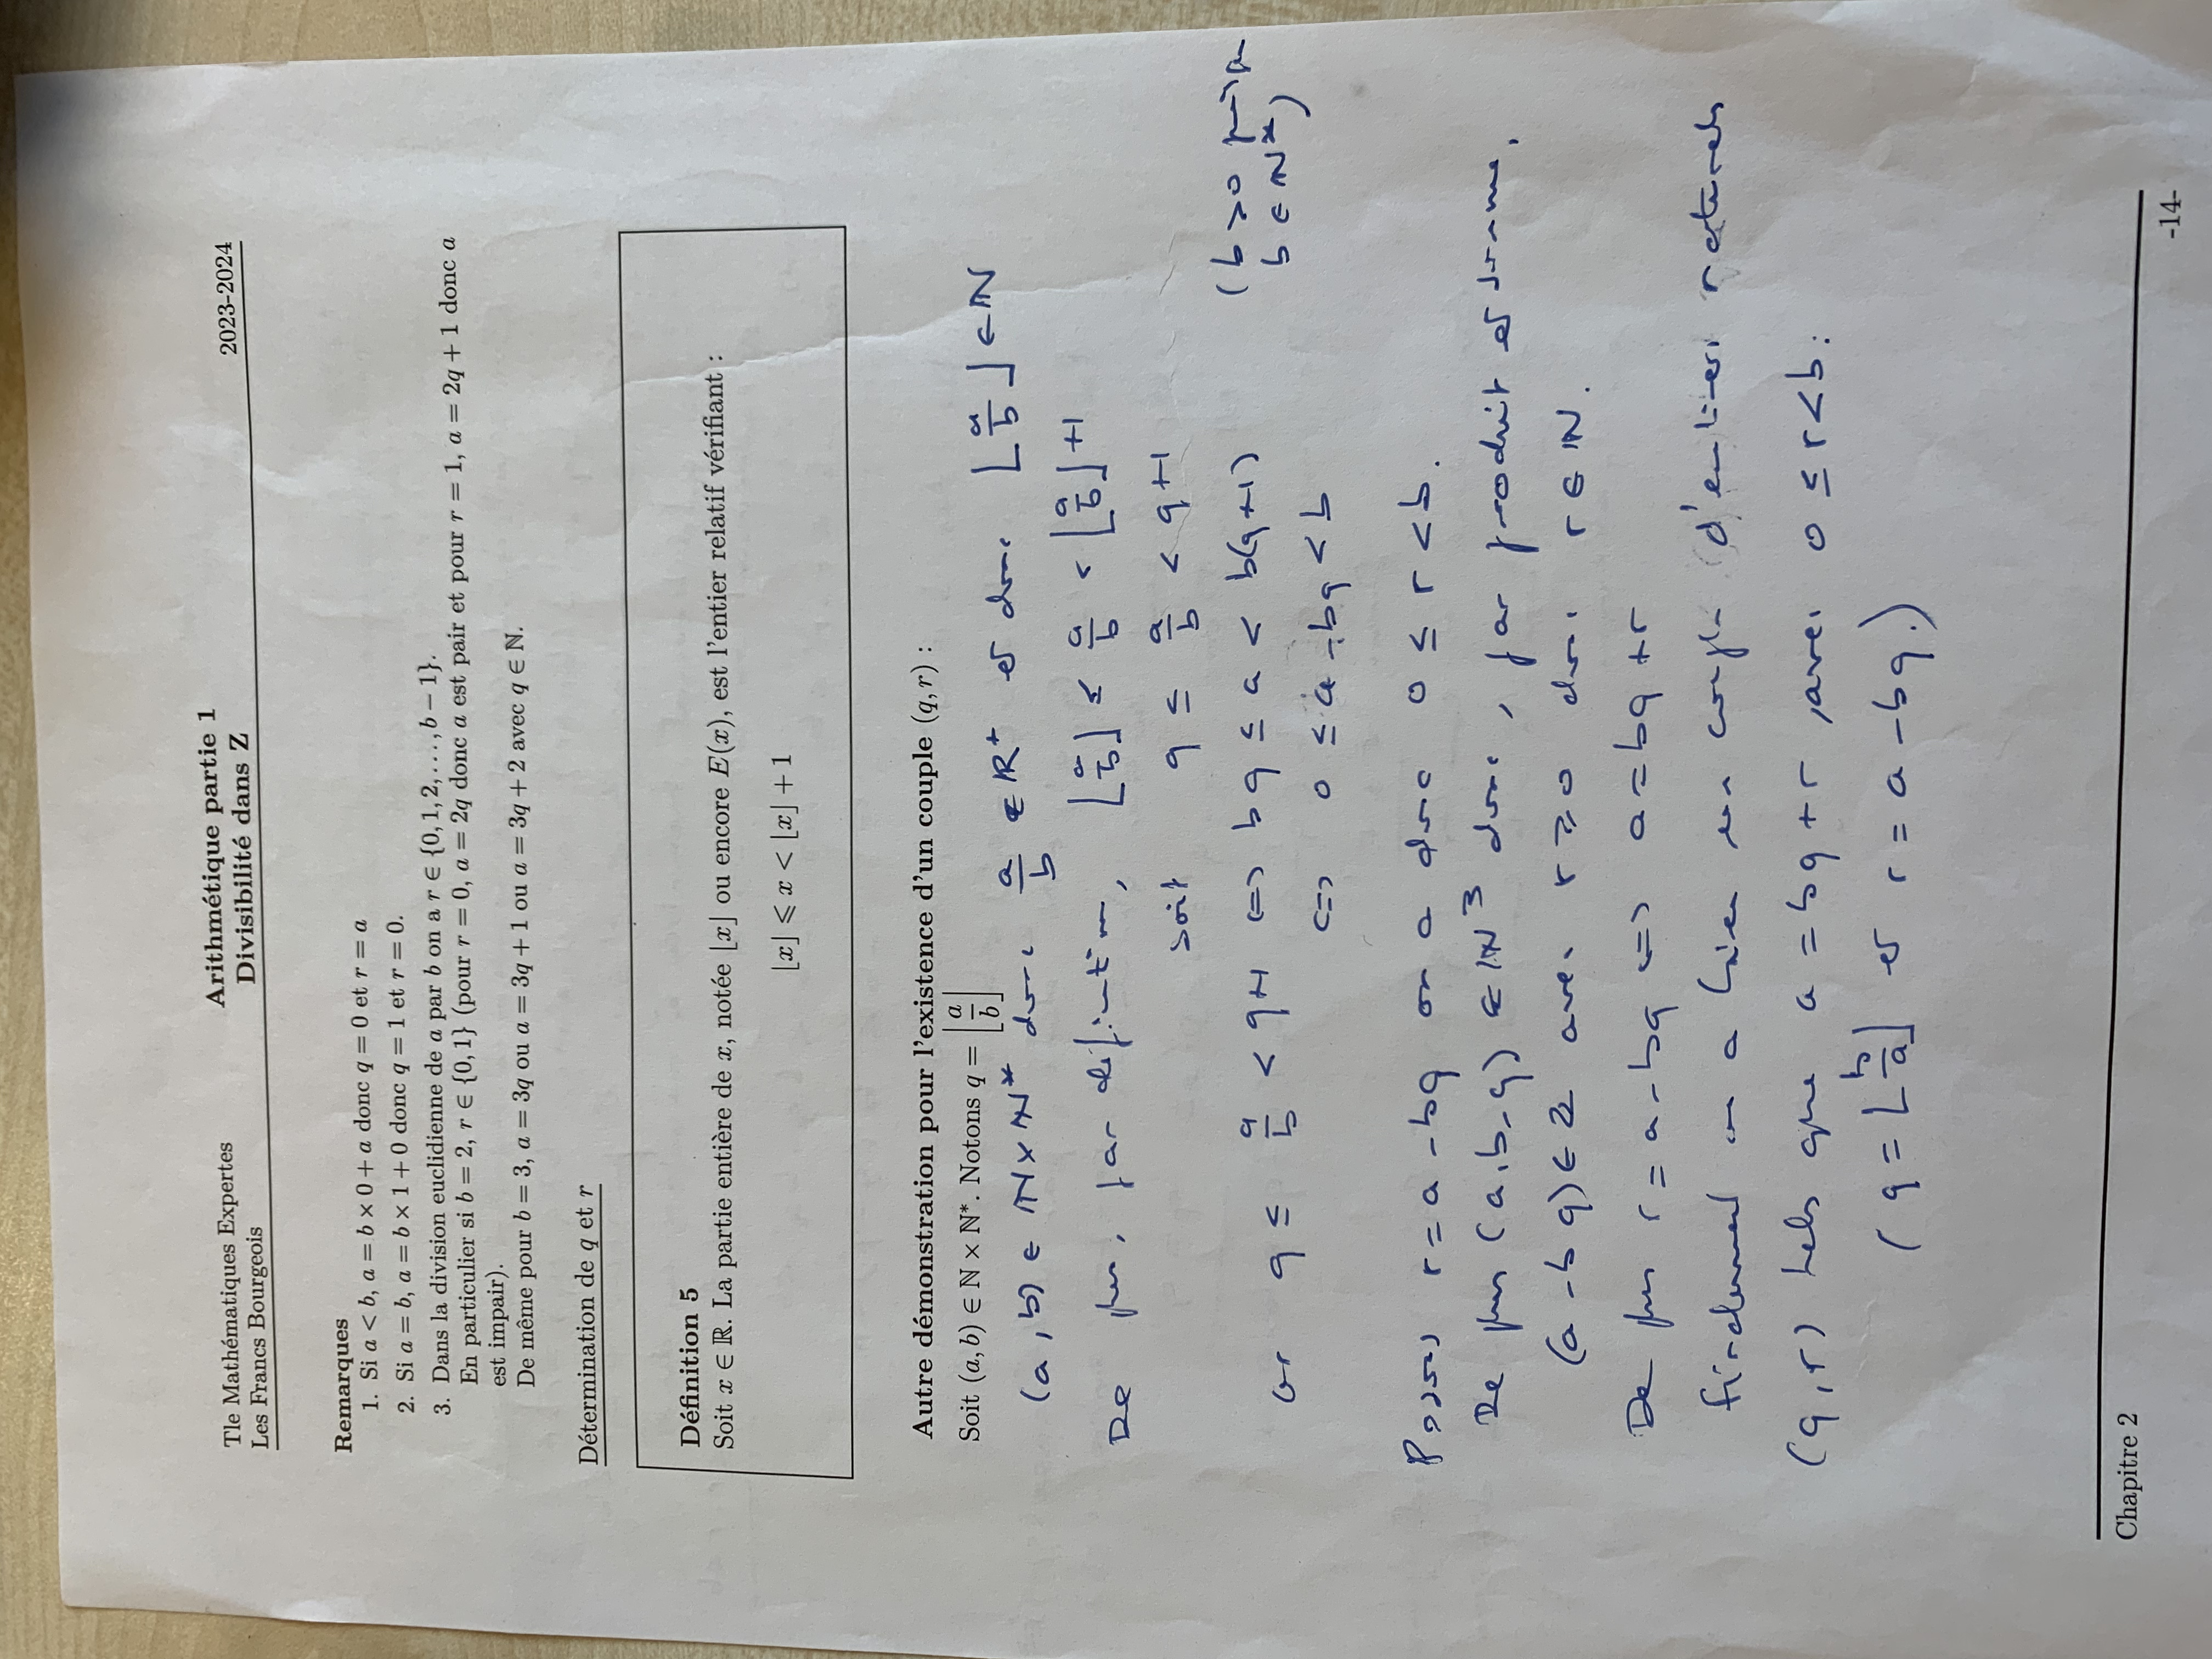 Tle Mathématiques Expertes
Les Francs Bourgeois
Arithmétique partie 1
Divisibilité dans Z
2023-2024
Remarques
1. Si a < b, a = b × 0 + a donc q = 0 et r = a
2. Si a = b, a = b × 1 + 0 donc q = 1 et r = 0.
3. Dans la division euclidienne de a par b on a r ∈ {0, 1, 2, . . . , b − 1}.
En particulier si b = 2, r ∈ {0, 1} (pour r = 0, a = 2q donc a est pair et pour r = 1, a = 2q + 1 donc a
est impair).
De même pour b = 3, a = 3q ou a = 3q + 1 ou a = 3q + 2 avec q ∈ ℕ.
Détermination de q et r
Définition 5
Soit x ∈ ℝ. La partie entière de x, notée ⌊x⌋ ou encore E(x), est l'entier relatif vérifiant :
⌊x⌋ ⩽ x < ⌊x⌋ + 1
Autre démonstration pour l'existence d'un couple (q, r) :
Soit (a, b) ∈ ℕ × ℕ*. Notons q = ⌊a/b⌋
(a, b) ∈ ℕ × ℕ* donc a/b ∈ ℝ+ et donc ⌊a/b⌋ ∈ ℕ
De plus, par définition, ⌊a/b⌋ ≤ a/b < ⌊a/b⌋ + 1
soit q ≤ a/b < q+1
or q ≤ a/b < q+1 ⇔ bq ≤ a < b(q+1) (b > 0 puisque
b ∈ ℕ*)
⇔ 0 ≤ a - bq < b
Posons r = a - bq on a donc 0 ≤ r < b.
De plus (a, b, q) ∈ ℕ³ donc, par produit et somme,
(a - bq) ∈ ℤ avec r ⩾ 0 donc r ∈ ℕ.
De plus r = a - bq ⇔ a = bq + r
finalement on a bien un couple d'entiers naturels
(q, r) tels que a = bq + r avec 0 ≤ r < b.
(q = ⌊b/a⌋ et r = a - bq.)
Chapitre 2
-14-